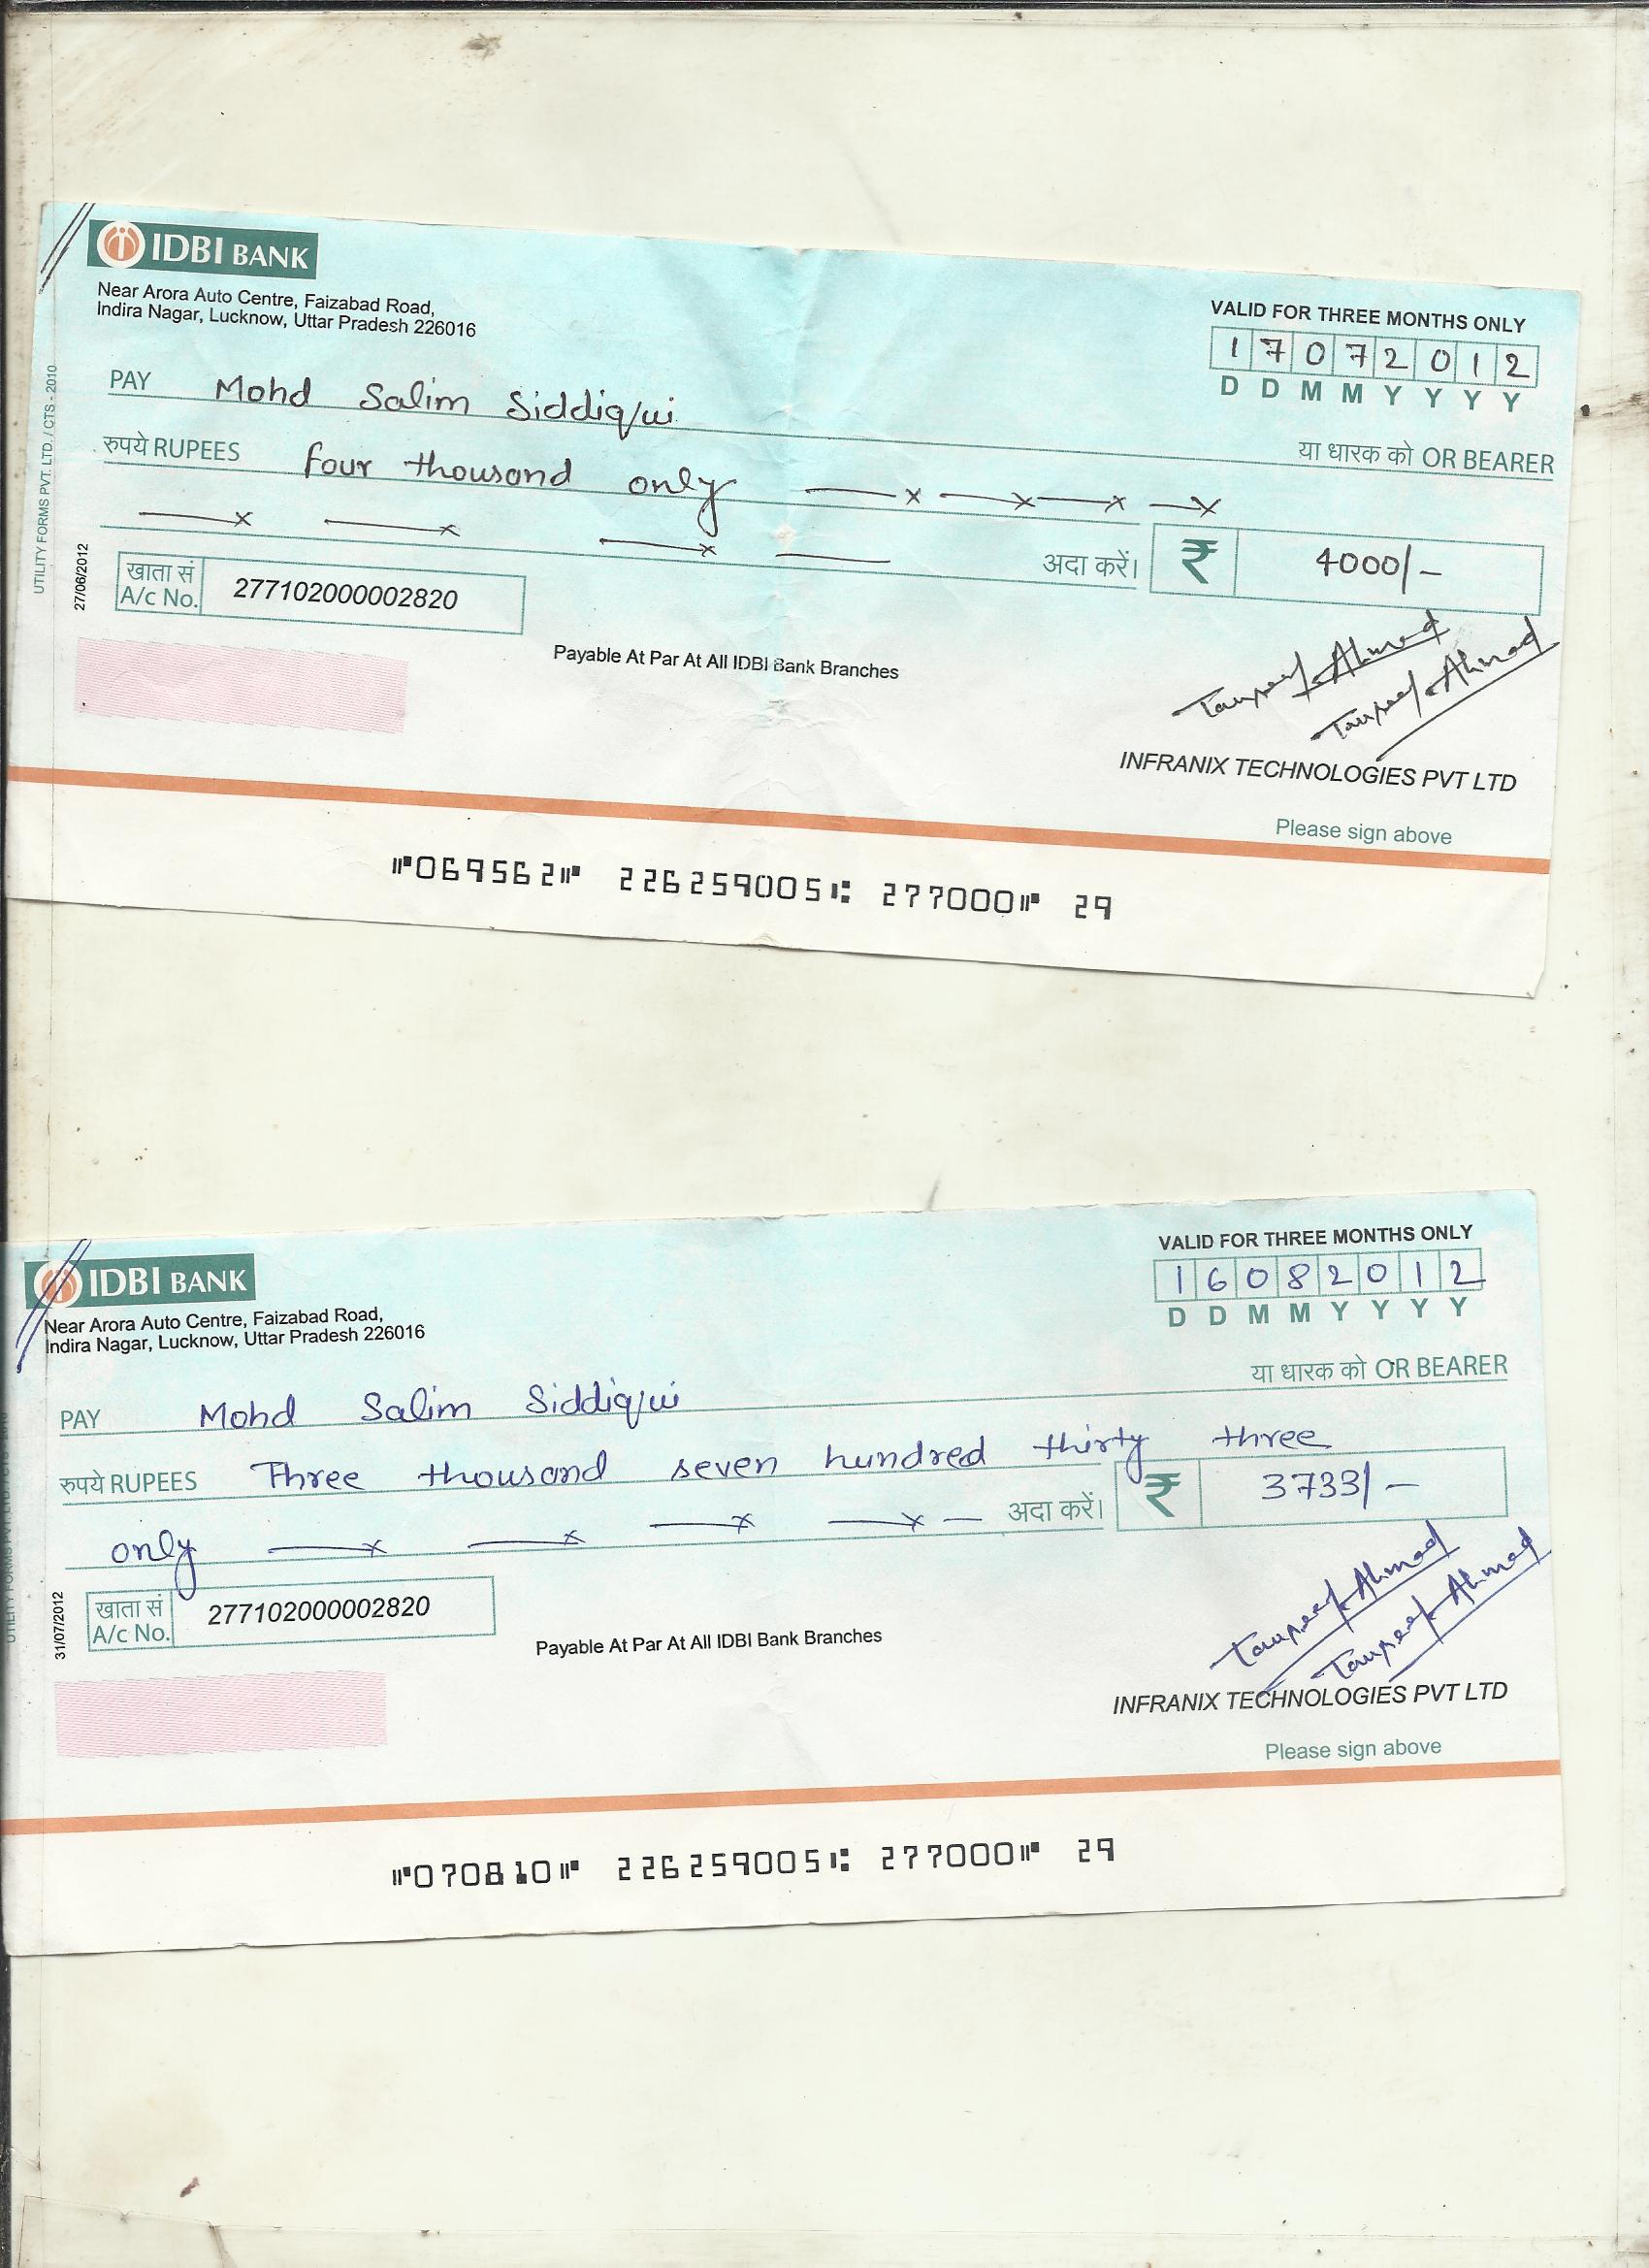 IDBI BANK
Near Arora Auto Centre, Faizabad Road,
Indira Nagar, Lucknow, Uttar Pradesh 226016
VALID FOR THREE MONTHS ONLY
17072012
D D M M Y Y Y Y
PAY Mohd Salim Siddiqui
या धारक को OR BEARER
रुपये RUPEES four thousand only
अदा करें। ₹ 4000/-
खाता सं
A/c No. 277102000002820
UTILITY FORMS PVT. LTD. / CTS - 2010
27/06/2012
Payable At Par At All IDBI Bank Branches
Tauseef Ahmad
Tauseef Ahmad
INFRANIX TECHNOLOGIES PVT LTD
Please sign above
⑈069562⑈ 226259005⑆ 277000⑈ 29
IDBI BANK
Near Arora Auto Centre, Faizabad Road,
Indira Nagar, Lucknow, Uttar Pradesh 226016
VALID FOR THREE MONTHS ONLY
16082012
D D M M Y Y Y Y
या धारक को OR BEARER
PAY Mohd Salim Siddiqui
रुपये RUPEES Three thousand seven hundred thirty three
₹ 3733/-
only अदा करें।
खाता सं
A/c No. 277102000002820
31/07/2012
Payable At Par At All IDBI Bank Branches
Tauseef Ahmad
Tauseef Ahmad
INFRANIX TECHNOLOGIES PVT LTD
Please sign above
⑈070810⑈ 226259005⑆ 277000⑈ 29